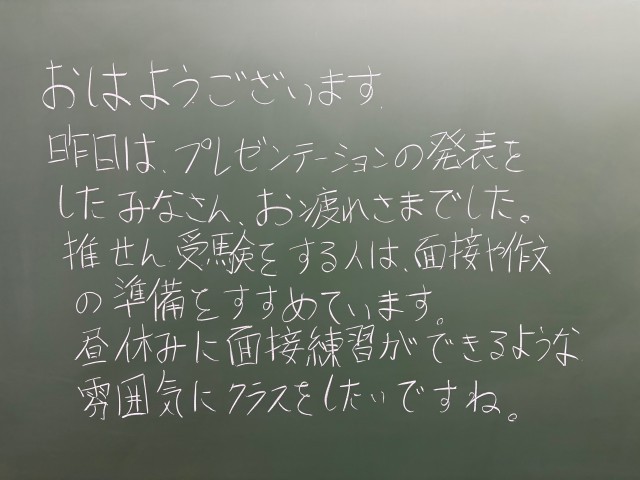 おはようございます.
昨日は、プレゼンテーションの発表を
したみなさん、お疲れさまでした。
推せん受験をする人は、面接や作文
の準備をすすめています。
昼休みに面接練習ができるような
雰囲気にクラスをしたいですね。